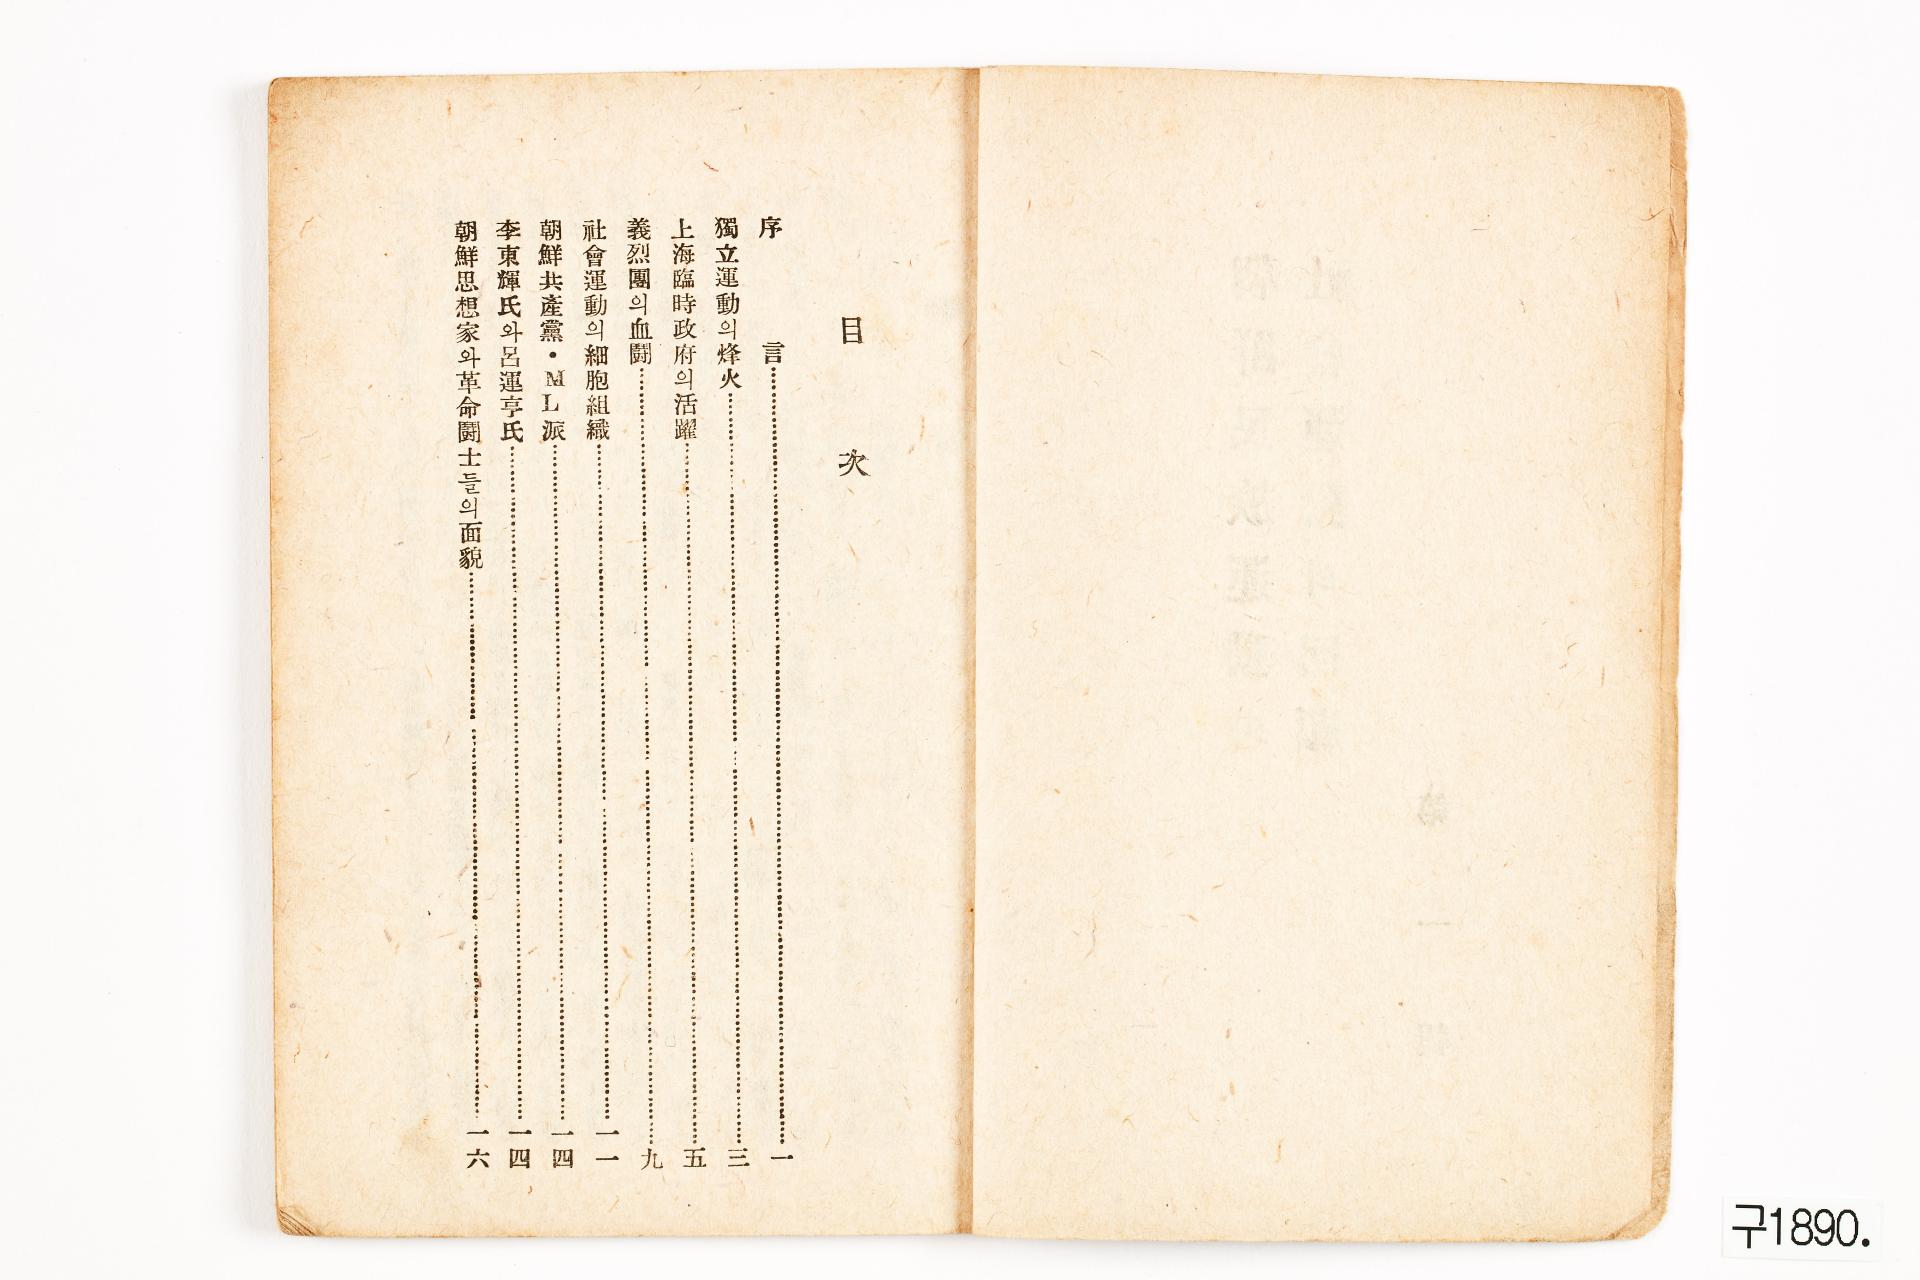 目次
序言……一
獨立運動의烽火……三
上海臨時政府의活躍……五
義烈團의血鬪……九
社會運動의細胞組織……一一
朝鮮共產黨・ML派……一四
李東輝氏와呂運亨氏……一四
朝鮮思想家와革命鬪士들의面貌……一六
구1890.